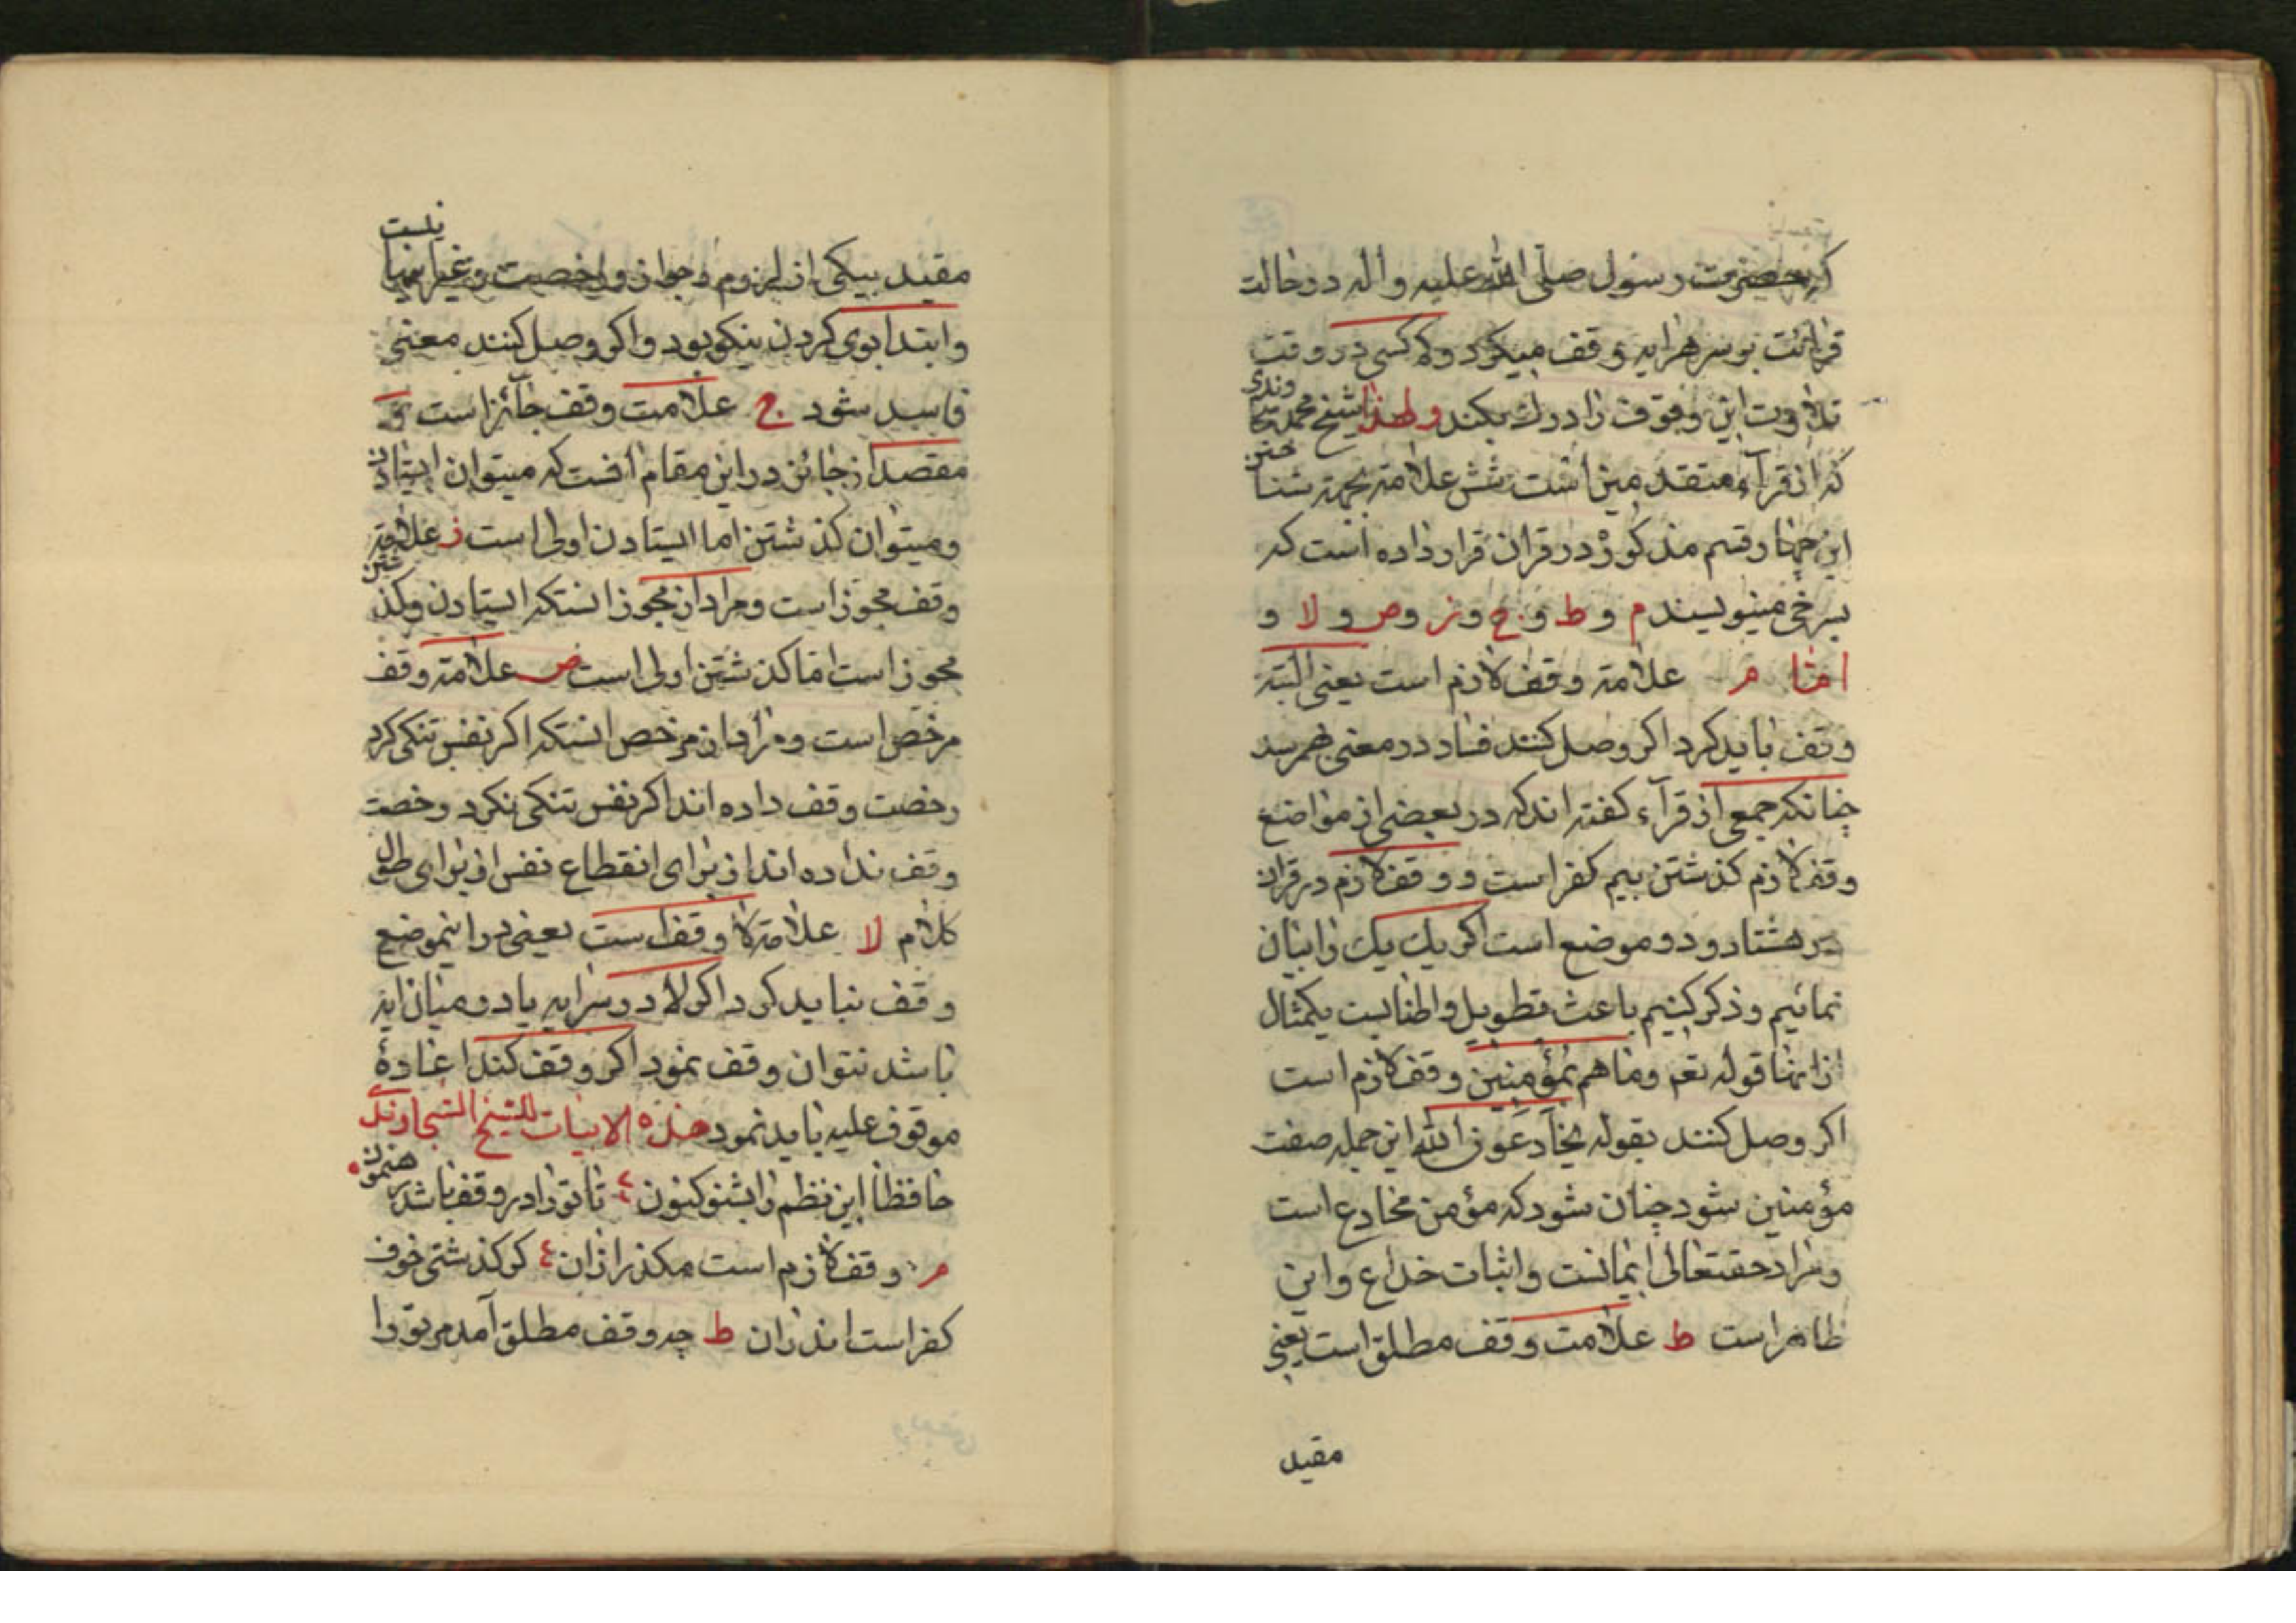 که حضرت رسول صلی الله علیه و اله در حالت
قرائت بر سر هر ایه وقف میکرد و که کسی در وقت
تلاوت این وقوف را درك بکند ولهذا شیخ محمد سجا
وندی
که از قرآء متقدمین است شش علامة بجهة شنا
ختن
این چهار قسم مذکور در قران قرار داده است که
بسرخی مینویسند م و ط و ج و ز و ص و لا و
اما م علامة وقف لازم است یعنی البته
وقف باید کرد اکر وصل کنند فساد در معنی بهمرسد
چنانکه جمعی از قرآء کفته اند که در بعضی از مواضع
وقف لازم کذشتن بیم کفر است و وقف لازم در قران
در هشتاد و دو موضع است اکر یك یك را بیان
نمائیم و ذکر کنیم باعث تطویل و اطنابست یکمثال
از انها قوله تعم وما هم بمؤمنین وقف لازم است
اکر وصل کنند بقوله یخادعون الله این جمله صفت
مؤمنین شود چنان شود که مؤمن مخادع است
و مراد حقتعالی ایمانست و اثبات خداع و این
ظاهر است ط علامت وقف مطلق است یعنی
مقید
نیست
مقید بیکی از لزوم و جواز و رخصت و غیر اینها
و ابتدا بوی کردن نیکو بود و اکر وصل کنند معنی
فاسد شود ج علامت وقف جائز است و
مقصد از جائز در این مقام انست که میتوان ایستادن
و میتوان کذشتن اما ایستادن اولی است ز علامة
وقف مجوز است و مراد از مجوز انستکه ایستادن و کذ
شتن
مجوز است اما کذشتن اولی است ص علامة وقف
مرخص است و مراد از مرخص انستکه اکر نفس تنکی کرد
رخصت وقف داده اند اکر نفس تنکی نکرد رخصت
وقف نداده اند از برای انقطاع نفس از برای طول
کلام لا علامة لا وقف است یعنی در اینموضع
وقف نباید کرد اکر لا در سر ایه یا در میان ایه
باشد نتوان وقف نمود اکر وقف کند اعادۀ
موقوف علیه باید نمود هذه الابیات للشیخ السجاوندی
حافظا این نظم را بشنو کنون تا ترا در وقف باشد
رهنمون
م وقف لازم است مکذر از ان کر کذشتی خوف
کفر است اندران ط چه وقف مطلق آمد مر ترا